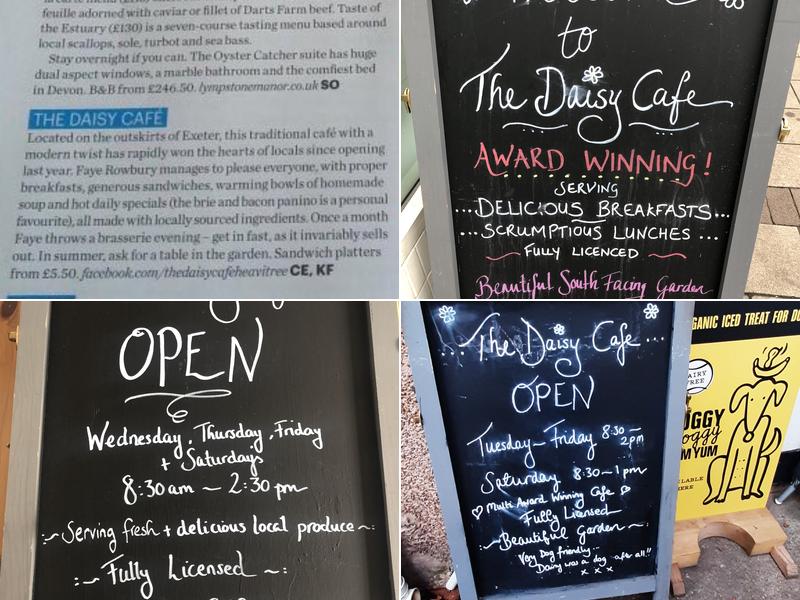 feuille adorned with caviar or fillet of Darts Farm beef. Taste of
the Estuary (£130) is a seven-course tasting menu based around
local scallops, sole, turbot and sea bass.
Stay overnight if you can. The Oyster Catcher suite has huge
dual aspect windows, a marble bathroom and the comfiest bed
in Devon. B&B from £246.50. lympstonemanor.co.uk SO
THE DAISY CAFÉ
Located on the outskirts of Exeter, this traditional café with a
modern twist has rapidly won the hearts of locals since opening
last year. Faye Rowbury manages to please everyone, with proper
breakfasts, generous sandwiches, warming bowls of homemade
soup and hot daily specials (the brie and bacon panino is a personal
favourite), all made with locally sourced ingredients. Once a month
Faye throws a brasserie evening – get in fast, as it invariably sells
out. In summer, ask for a table in the garden. Sandwich platters
from £5.50. facebook.com/thedaisycafeheavitree CE, KF
to
The Daisy Cafe
AWARD WINNING!
SERVING
...DELICIOUS BREAKFASTS...
...SCRUMPTIOUS LUNCHES ...
FULLY LICENCED
Beautiful South Facing Garden
OPEN
Wednesday, Thursday, Friday
+ Saturdays
8:30am ~ 2:30pm
Serving fresh + delicious local produce
Fully Licensed
...The Daisy Cafe...
OPEN
Tuesday - Friday 8:30 -
2pm
Saturday 8:30 - 1pm
Multi Award Winning Cafe
Fully Licensed
Beautiful Garden
Very Dog friendly...
Daisy was a dog after all!!
x x x
GANIC ICED TREAT FOR DO
AIRY
FREE
OGGY
oggy
M YUM
ILABLE
HERE